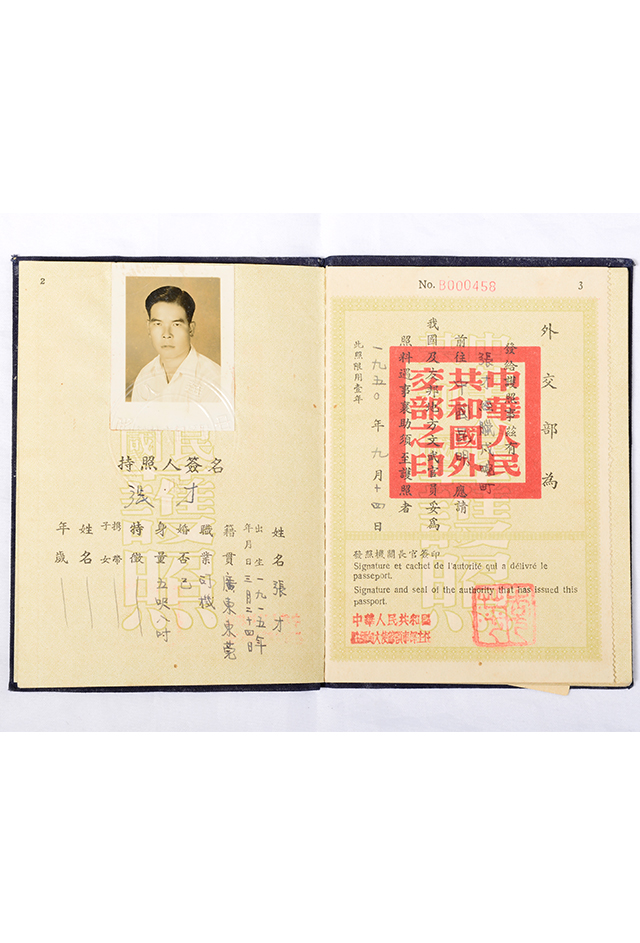 2
持照人簽名
張才
姓名 張才
出生年月日 一九一五年三月二十四日
籍貫 廣東東莞
職業 司機
婚否 已
身量 五呎八吋
特徵
攜帶子女
姓名
年歲
No. B000458
3
外交部為
發給護照事茲有
張才
前往
應請
我國及友邦地方文武官員妥為
照料遇事襄助須至護照者
一九五〇年九月十四日
此照限用壹年
中華人民共和國外交部之印
發照機關長官簽印
Signature et cachet de l'autorité qui a délivré le
passeport.
Signature and seal of the authority that has issued this
passport.
中華人民共和國